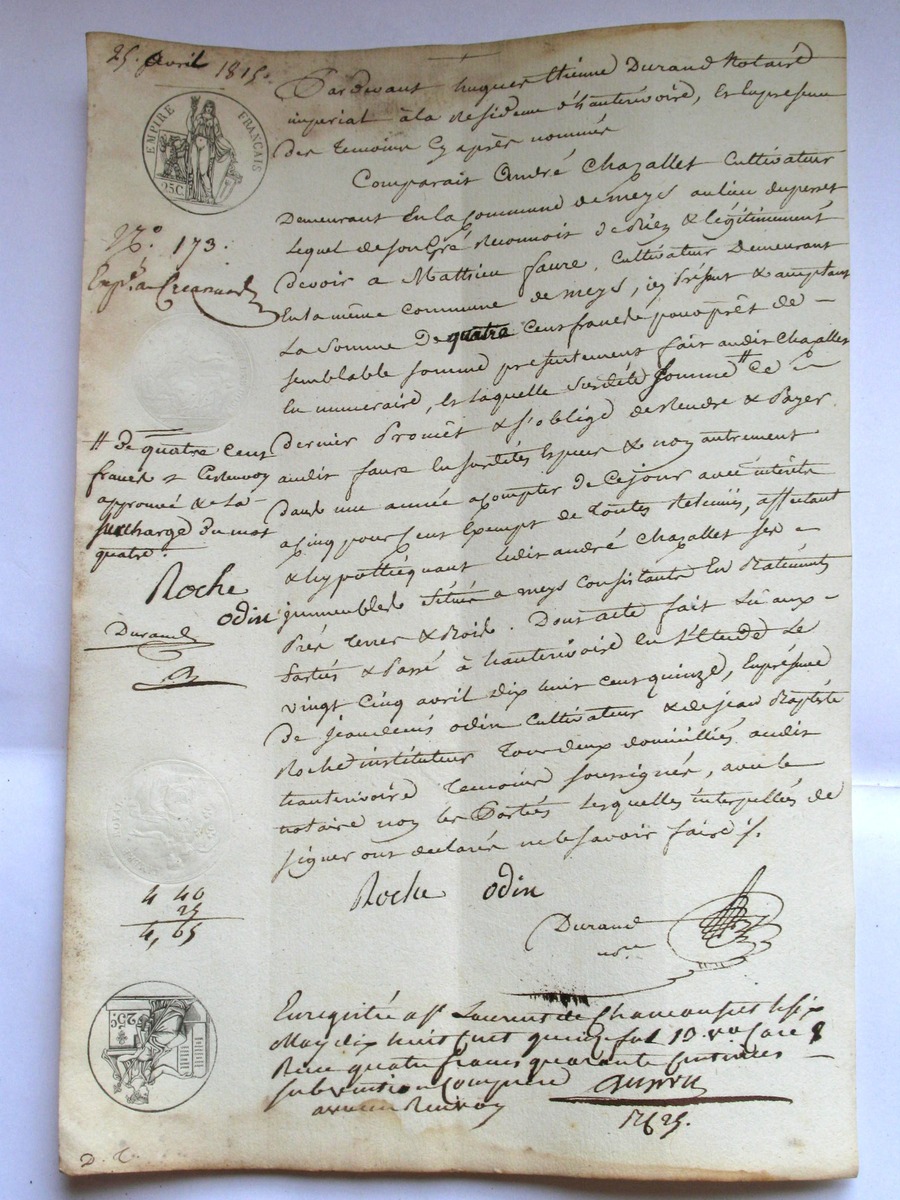 25. avril 1815.
EMPIRE FRANÇAIS
25C.
N.° 173.
Pardevant hugues Etienne Durand Notaire
imperial à la Residence d'hauterivoire, En la presence
des temoins Cy après nommés
Comparait André Chazallet Cultivateur
Demeurant En la Commune de meys au lieu du
Lequel de son Gré Reconnoit de Rièz & légitimement
Devoir a Mathieu faure, Cultivateur Demeurant
En la même Commune de meys, icy présent & acceptant
La Somme De quatre Cent francs pour prêt de -
semblable somme presentement fait audit Chazallet
En numeraire, & laquelle susditte somme // Ce -
dernier Promet & s'oblige de Rendre & Payer
audit faure En susdites Espèces & non autrement
dans une année a Compter de Ce jour avec intérêts
a Cinq pour Cent Exempt de toutes Retenues, affectant
& hypothéquant ledit andré Chazallet ses -
immeubles Situés a meys Consistants En Batiments
Près terres & Bois. Dont acte fait Lu aux -
Parties & Passé à hauterivoire En l'Etude Le
vingt Cinq avril dix huit Cent quinze, En présence
De jean denis odin Cultivateur & de jean Baptiste
Roche instituteur Tous deux domiciliés audit
hauterivoire Temoins soussignés, avec le
notaire non les Parties Lesquelles interpellées de
signer ont declaré ne le savoir faire ·/.
Roche odin
Durand
nore
// de quatre Cent
francs & Ce Renvoy
approuvé & la
surcharge du mot
quatre.
Roche
odin
Durand
4 40
25
4,65
25C.
Enregistré a St Laurent de Chamousset le six
May dix huit Cent quinze fol 10. vo Case 8
Reçu quatre francs quarante Centimes
subvention Comprise
avec un Renvoy
D. T.